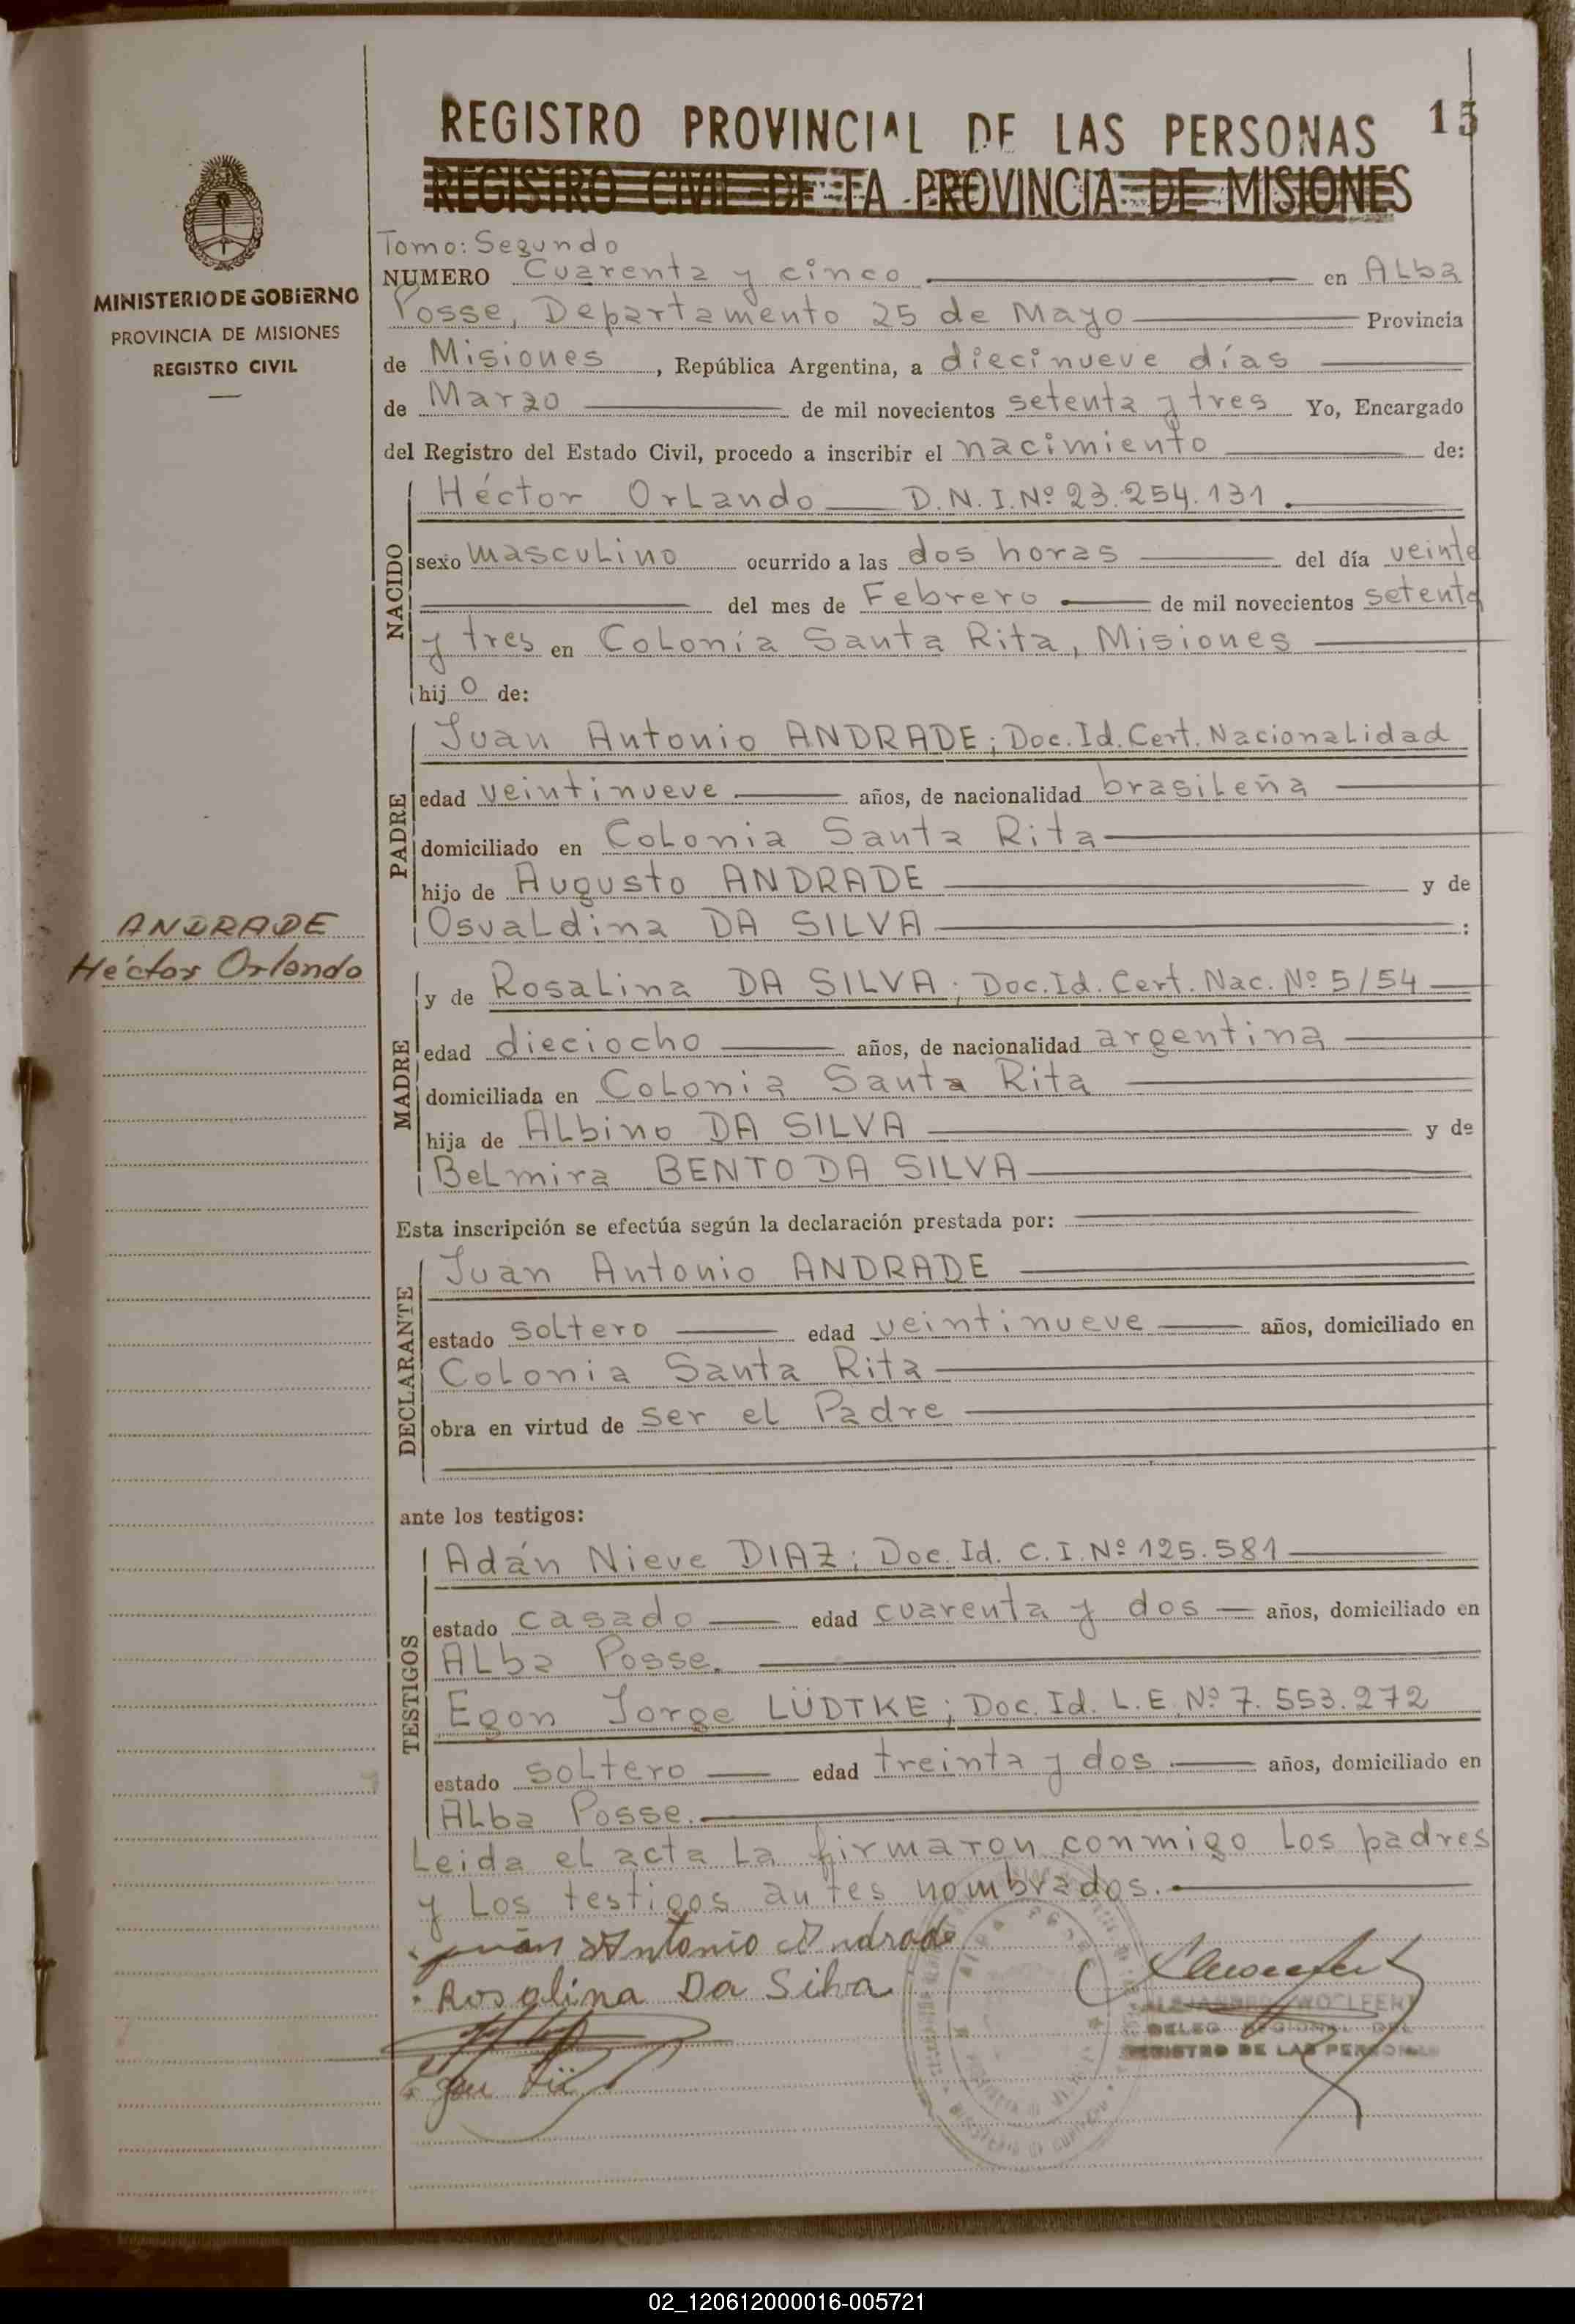 REGISTRO PROVINCIAL DE LAS PERSONAS
REGISTRO CIVIL DE LA PROVINCIA DE MISIONES
MINISTERIO DE GOBIERNO
PROVINCIA DE MISIONES
REGISTRO CIVIL
Tomo: Segundo
NUMERO Cuarenta y cinco en Alba
Posse, Departamento 25 de Mayo Provincia
de Misiones, República Argentina, a diecinueve días
de Marzo de mil novecientos setenta y tres Yo, Encargado
del Registro del Estado Civil, procedo a inscribir el nacimiento de:
NACIDO
Héctor Orlando D.N.I.Nº 23.254.131.
sexo masculino ocurrido a las dos horas del día veinte
del mes de Febrero de mil novecientos setenta
y tres en Colonia Santa Rita, Misiones
hijo de:
PADRE
Juan Antonio ANDRADE; Doc.Id.Cert.Nacionalidad
edad veintinueve años, de nacionalidad brasileña
domiciliado en Colonia Santa Rita
hijo de Augusto ANDRADE y de
Osvaldina DA SILVA :
ANDRADE
Héctor Orlando
MADRE
y de Rosalina DA SILVA; Doc.Id.Cert.Nac.Nº 5/54
edad dieciocho años, de nacionalidad argentina
domiciliada en Colonia Santa Rita
hija de Albino DA SILVA y de
Belmira BENTO DA SILVA
Esta inscripción se efectúa según la declaración prestada por:
DECLARANTE
Juan Antonio ANDRADE
estado soltero edad veintinueve años, domiciliado en
Colonia Santa Rita
obra en virtud de ser el Padre
ante los testigos:
TESTIGOS
Adán Nieve DIAZ; Doc.Id. C.I.Nº 125.581
estado casado edad cuarenta y dos años, domiciliado en
Alba Posse.
Egon Jorge LÜDTKE; Doc.Id. L.E.Nº 7.553.272
estado soltero edad treinta y dos años, domiciliado en
Alba Posse.
Leida el acta la firmaron conmigo los padres
y los testigos antes nombrados.
Juan Antonio Andrade
Rosalina Da Silva
DELEG. REGIONAL DEL
REGISTRO DE LAS PERSONAS
02_120612000016-005721